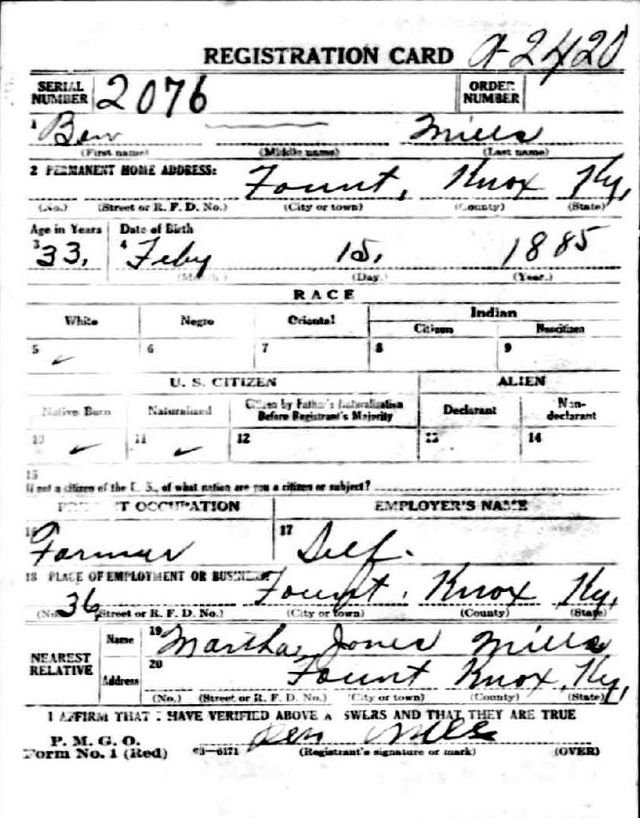 REGISTRATION CARD A-2420
SERIAL NUMBER 2076 ORDER NUMBER
1 Ben Mills
(First name) (Middle name) (Last name)
2 PERMANENT HOME ADDRESS: Fount, Knox Ky,
(No.) (Street or R. F. D. No.) (City or town) (County) (State)
Age in Years Date of Birth
3 33, 4 Feby 15, 1885
(Month.) (Day.) (Year.)
RACE
White Negro Oriental Indian
Citizen Noncitizen
5 ✓ 6 7 8 9
U. S. CITIZEN ALIEN
Native Born Naturalized Citizen by Father's Naturalization Before Registrant's Majority Declarant Non-declarant
10 ✓ 11 ✓ 12 13 14
15
If not a citizen of the U. S., of what nation are you a citizen or subject?
PRESENT OCCUPATION EMPLOYER'S NAME
16 Farmer 17 Self.
18 PLACE OF EMPLOYMENT OR BUSINESS: Fount, Knox Ky,
36
(No.) (Street or R. F. D. No.) (City or town) (County) (State)
NEAREST RELATIVE Name 19 Martha Jones Mills
Address 20 Fount Knox, Ky,
(No.) (Street or R. F. D. No.) (City or town) (County) (State)
I AFFIRM THAT I HAVE VERIFIED ABOVE ANSWERS AND THAT THEY ARE TRUE
P. M. G. O.
Form No. 1 (Red) 03-6171 Ben Mills
(Registrant's signature or mark) (OVER)